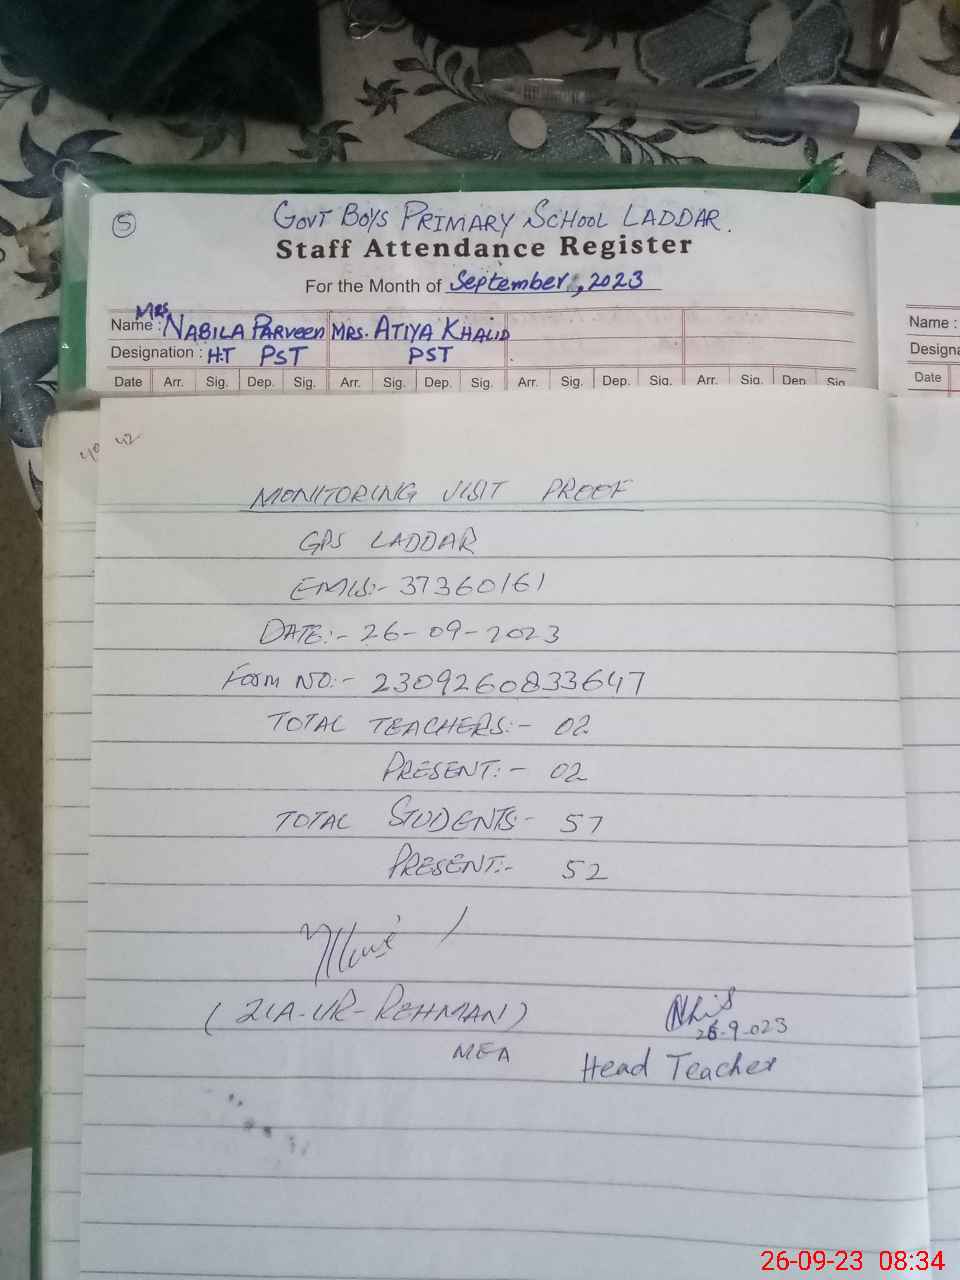 5
GOVT BOYS PRIMARY SCHOOL LADDAR.
Staff Attendance Register
For the Month of September, 2023
Name : Mrs. NABILA PARVEEN MRS. ATIYA KHALID
Designation : H.T PST PST
Date Arr. Sig. Dep. Sig. Arr. Sig. Dep. Sig. Arr. Sig. Dep. Sig. Arr. Sig. Dep Sig
Name :
Designa
Date
42
MONITORING VISIT PROOF
GPS LADDAR
EMIS:- 37360161
DATE:- 26-09-2023
Form NO:- 2309260833647
TOTAL TEACHERS:- 02
PRESENT:- 02
TOTAL STUDENTS- 57
PRESENT:- 52
(ZIA-UR-REHMAN)
MEA
26-9-023
Head Teacher
26-09-23 08:34